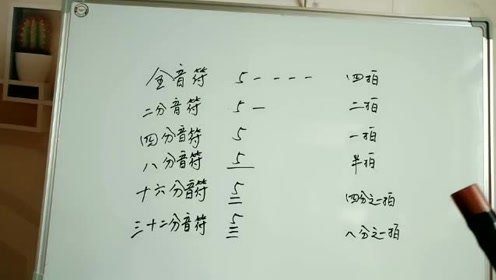 全音符 5 - - - - 四拍
二分音符 5 - 二拍
四分音符 5 一拍
八分音符 5 半拍
十六分音符 5 四分之一拍
三十二分音符 5 八分之一拍